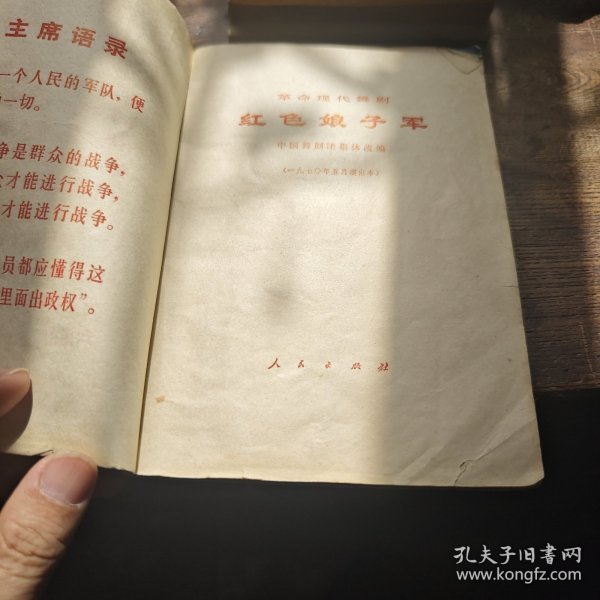 主席语录
一个人民的军队，便
一切。
争是群众的战争，
才能进行战争，
才能进行战争。
员都应懂得这
里面出政权”。
革命现代舞剧
红色娘子军
中国舞剧团集体改编
（一九七〇年五月演出本）
人民出版社
孔夫子旧书网
www.kongfz.com